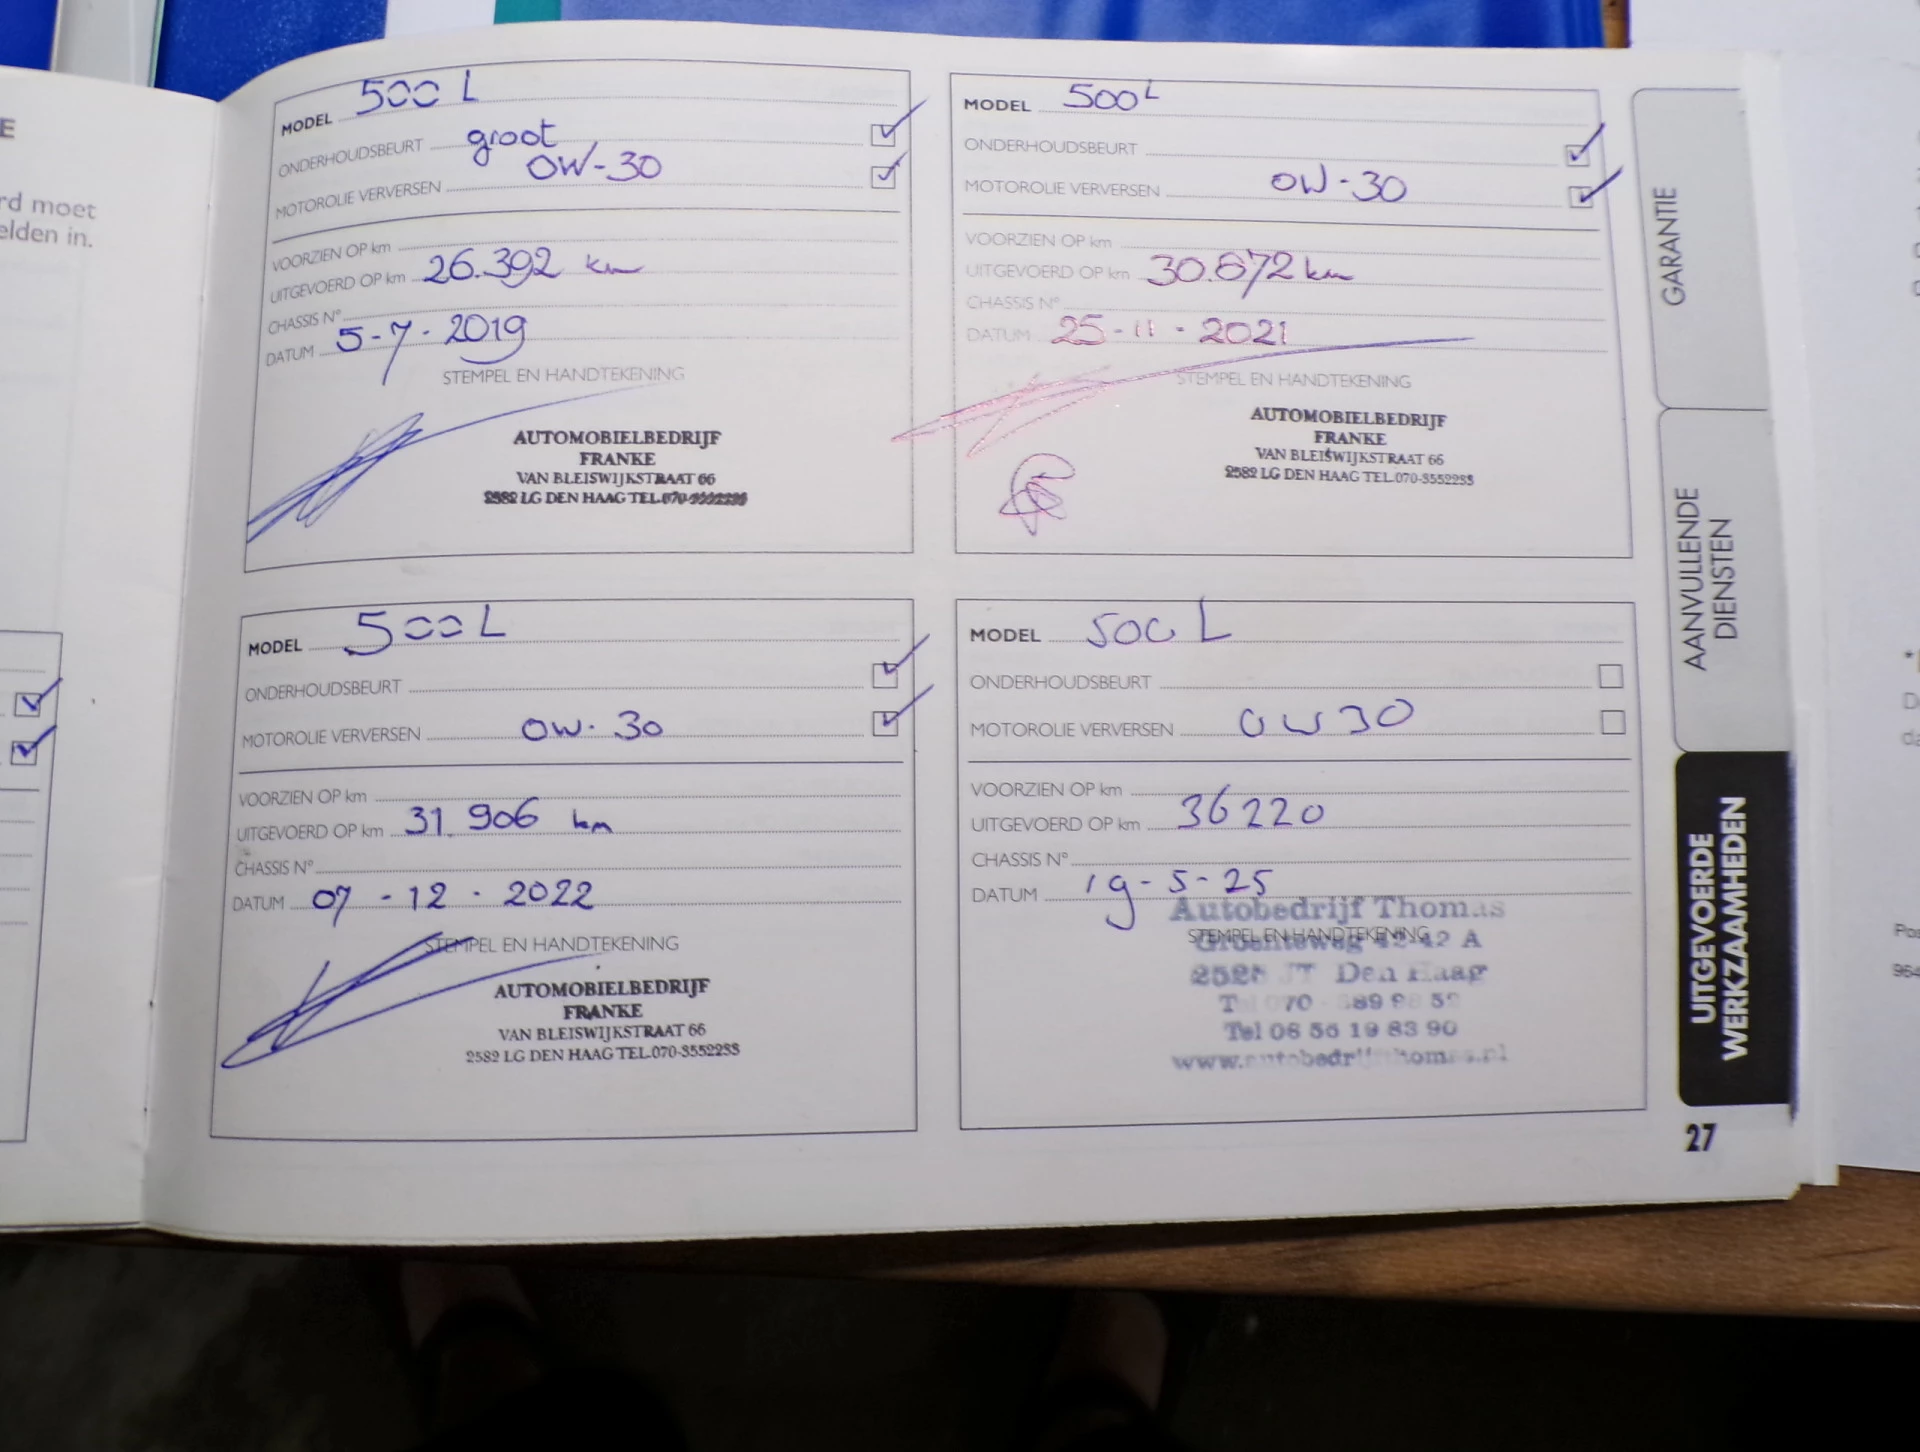 E
rd moet
elden in.
MODEL 500 L
ONDERHOUDSBEURT groot
MOTOROLIE VERVERSEN 0W-30
VOORZIEN OP km
UITGEVOERD OP km 26.392 km
CHASSIS N°
DATUM 5-7-2019
STEMPEL EN HANDTEKENING
AUTOMOBIELBEDRIJF
FRANKE
VAN BLEISWIJKSTRAAT 66
2582 LG DEN HAAG TEL.070-
MODEL 500L
ONDERHOUDSBEURT
MOTOROLIE VERVERSEN 0W-30
VOORZIEN OP km
UITGEVOERD OP km 30.672 km
CHASSIS N°
DATUM 25-11-2021
STEMPEL EN HANDTEKENING
AUTOMOBIELBEDRIJF
FRANKE
VAN BLEISWIJKSTRAAT 66
2582 LG DEN HAAG TEL.070-3552233
MODEL 500 L
ONDERHOUDSBEURT
MOTOROLIE VERVERSEN 0W-30
VOORZIEN OP km
UITGEVOERD OP km 31.906 km
CHASSIS N°
DATUM 07-12-2022
STEMPEL EN HANDTEKENING
AUTOMOBIELBEDRIJF
FRANKE
VAN BLEISWIJKSTRAAT 66
2582 LG DEN HAAG TEL.070-3552233
MODEL 500 L
ONDERHOUDSBEURT
MOTOROLIE VERVERSEN 0W30
VOORZIEN OP km
UITGEVOERD OP km 36220
CHASSIS N°
DATUM 19-5-25
Autobedrijf Thomas
STEMPEL EN HANDTEKENING
42-42 A
Den Haag
Tel 06 56 19 83 90
www.autobedrijfthomas.nl
GARANTIE
AANVULLENDE
DIENSTEN
UITGEVOERDE
WERKZAAMHEDEN
27